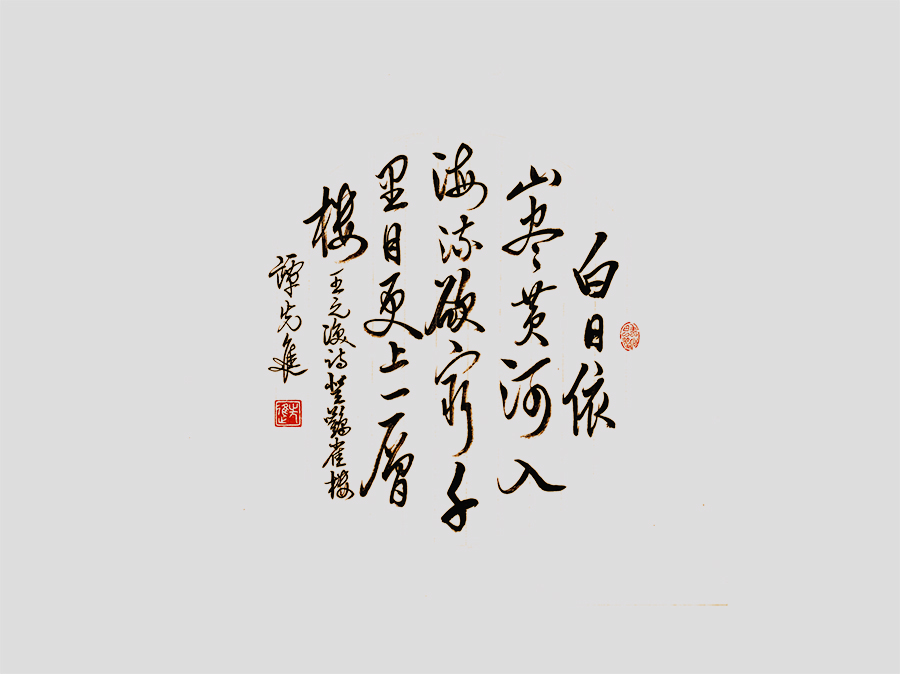 白日依
山尽黄河入
海流欲穷千
里目更上一层
楼
王之涣诗登鹳雀楼
谭先進